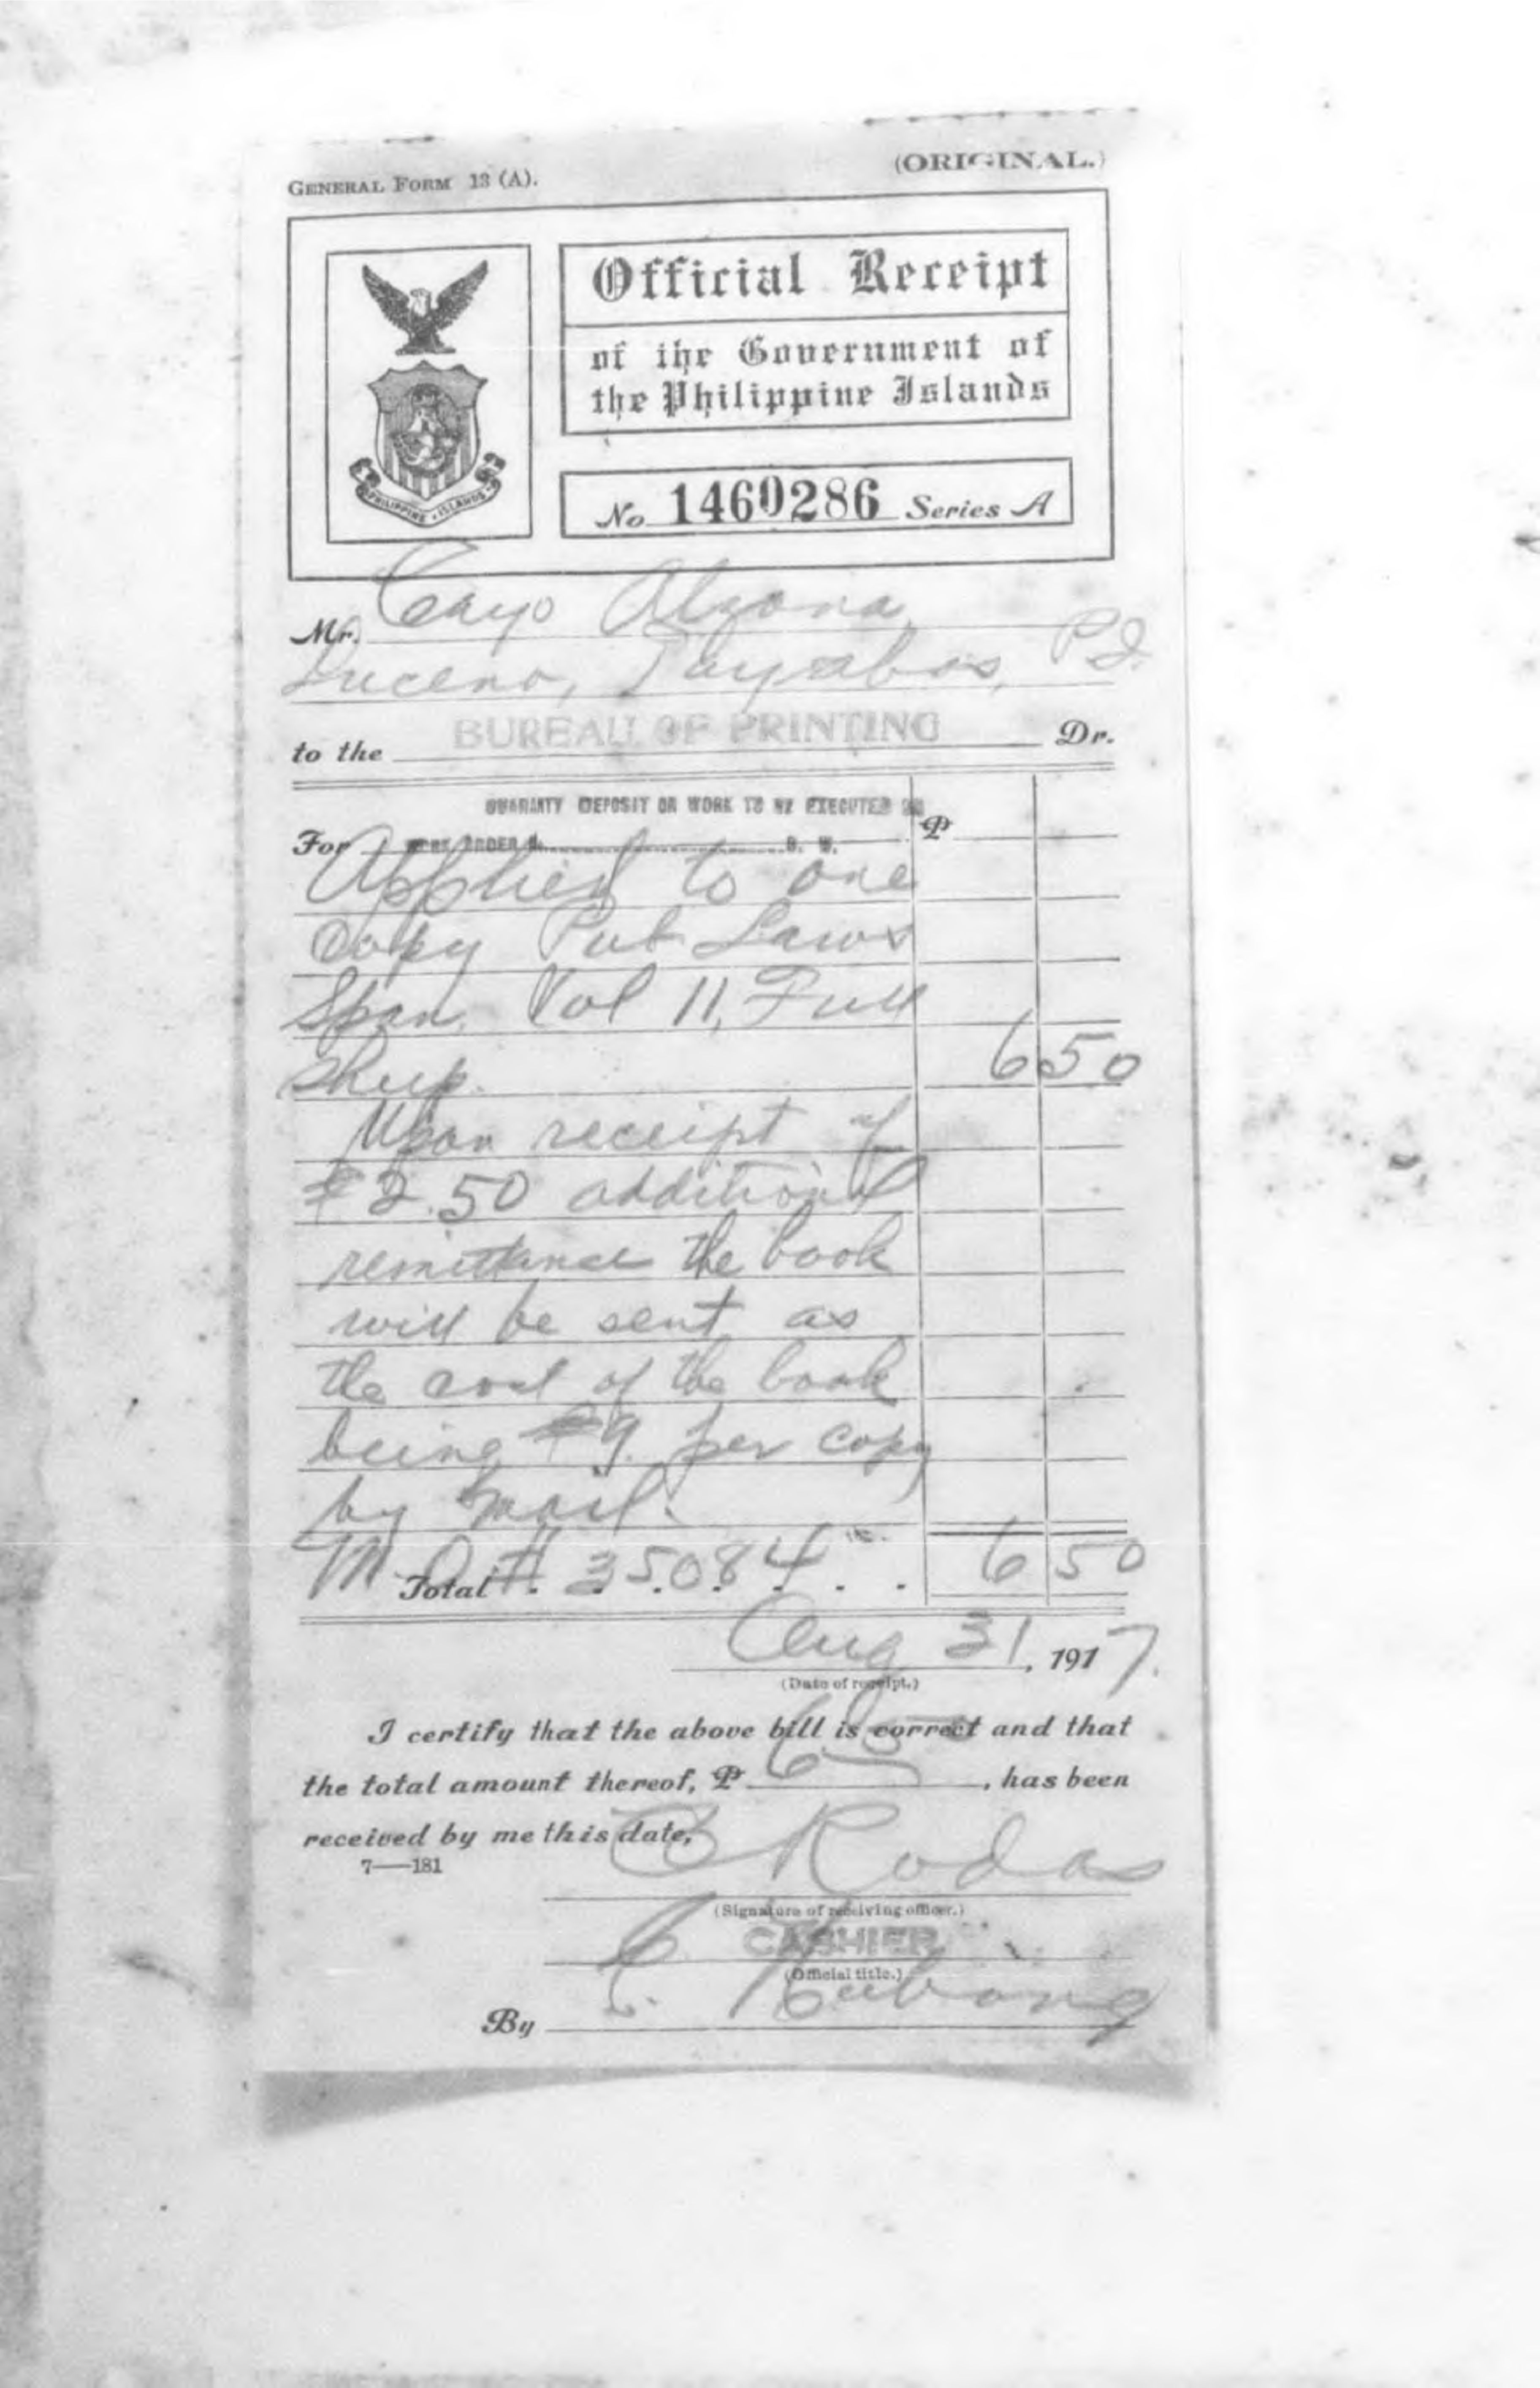 GENERAL FORM 13 (A).
(ORIGINAL.)
Official Receipt
of the Government of
the Philippine Islands
PHILIPPINE ISLANDS
No 1460286 Series A
Mr. Cayo Alzona
Lucena, Tayabas, P.I.
to the BUREAU OF PRINTING Dr.
GUARANTY DEPOSIT ON WORK TO BE EXECUTED ON
For WORK ORDER B. W. ₱
Applied to one
copy Pub Laws
Span. Vol 11, Full
Sheep. 6 50
Upon receipt of
₱2.50 additional
remittance the book
will be sent as
the cost of the book
being ₱9. per copy
by mail.
M.O. #. 35084
Total . . . . . . 6 50
Aug 31, 1917.
(Date of receipt.)
I certify that the above bill is correct and that
the total amount thereof, ₱ 6 50, has been
received by me this date,
7—181
Rodas
(Signature of receiving officer.)
CASHIER
(Official title.)
By